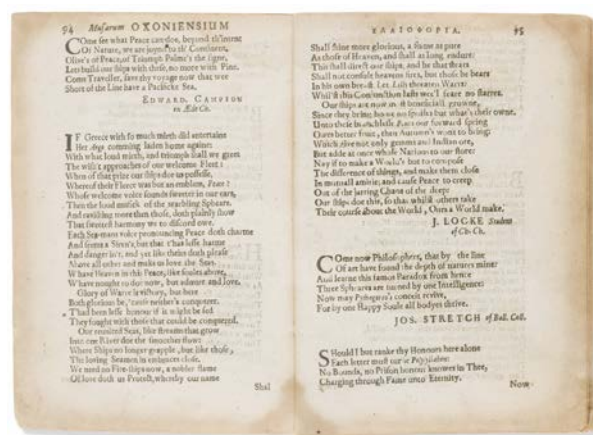 94 Musarum OXONIENSIUM
COme see what Peace can doe, beyond th'intent
Of Nature, we are joyn'd to th' Continent,
Olive's of Peace, of Triumph Palme's the signe,
Lets build our ships with those, no more with Pine.
Come Traveller, save thy voyage now that wee
Short of the Line have a Pacificke Sea.
EDWARD. CAMPION
ex Æde Ch.
IF Greece with so much mirth did entertaine
Her Argo comming laden home againe:
With what loud mirth, and triumph shall we greet
The wisht approaches of our welcome Fleet?
When of that prize our ships doe possesse,
Whereof their Fleece was but an emblem, Peace?
Whose welcome voice sounds sweeter in our eares,
Then the loud musick of the warbling Spheare.
And ravishing more then those, doth plainly show
That sweetest harmony we to discord owe.
Each Sea-mans voice pronouncing Peace doth charme
And seems a Siren's, but that t'has lesse harme
And danger in't, and yet like theirs doth please
Above all other and makes us love the Seas.
W'have Heaven in this Peace, like soules above,
W'have nought to doe now, but admire and love.
Glory of Warre is victory, but here
Both glorious be, 'cause neither's conquerer.
T'had been lesse honour if it might be sed
They fought with those that could be conquered.
Our reunited Seas, like streams that grow
Into one River doe the smoother flow:
Where Ships no longer grapple, but like those,
The loving Seamen in embraces close.
We need no Fire-ships now, a nobler flame
Of love doth us Protect, whereby our name
Shal
ΕΛΑΙΟΦΟΡΙΑ. 95
Shall shine more glorious, a flame as pure
As those of Heaven, and shall as long endure:
This shall direct our ships, and he that stears
Shall not consult heavens fires, but those he bears
In his own breast. Let Lilly threaten Warrs:
Whil'st this Conjunction lasts wee'l feare no starres.
Our ships are now most beneficiall growne,
Since they bring home no spoiles but what's their owne.
Unto these branchlesse Pines our forward spring
Owes better fruit, then Autumn's wont to bring:
Which give not only gemms and Indian ore,
But adde at once whole Nations to our store:
Nay if to make a World's but to compose
The difference of things, and make them close
In mutuall amitie; and cause Peace to creep
Out of the jarring Chaos of the deep:
Our ships doe this, so that whilst others take
Their course about the World, Ours a World make.
J. LOCKE Student
of Ch. Ch.
COme now Philosophers, that by the line
Of art have found the depth of natures mine:
And learne this famous Paradox from hence
Three Sphears are turned by one Intelligence:
Now may Pythagora's conceit revive,
For by one Happy Soule all bodyes thrive.
JOS. STRETCH of Ball. Coll.
SHould I but ranke thy Honours here alone
Each letter must our
No Bounds, no Prison honour knowes in Thee,
Charging through Fame unto Eternity.
Now